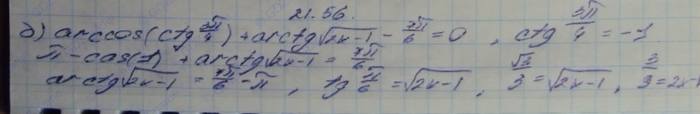 21.56.
д) arccos(ctg 3π/4) + arctg√2x-1 - 7π/6 = 0 , ctg 3π/4 = -1
π - cos(1) + arctg√2x-1 = 7π/6
arctg√2x-1 = 7π/6 - π , tg π/6 = √2x-1 , √3/3 = √2x-1 , 3/9 = 2x-1